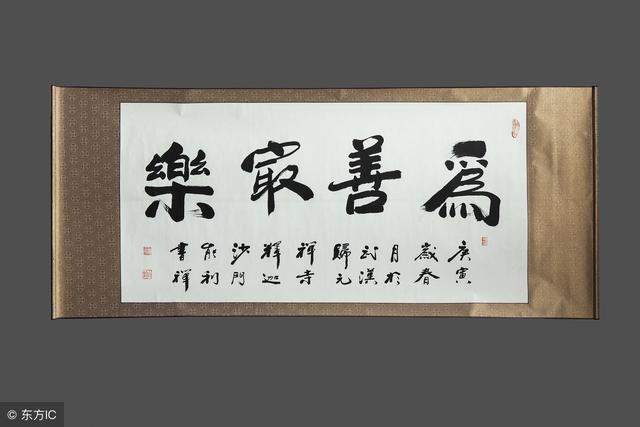 爲善㝡樂
庚寅
歲春
月於
武漢
歸元
禅寺
釋迦
沙門
能利
書禅
© 东方IC